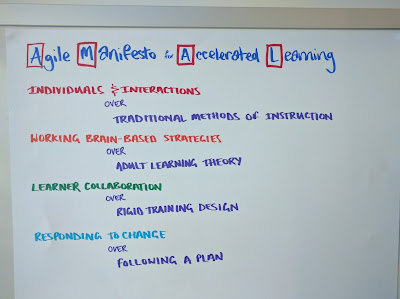 Agile Manifesto for Accelerated Learning
INDIVIDUALS & INTERACTIONS
OVER
TRADITIONAL METHODS OF INSTRUCTION
WORKING BRAIN-BASED STRATEGIES
OVER
ADULT LEARNING THEORY
LEARNER COLLABORATION
OVER
RIGID TRAINING DESIGN
RESPONDING TO CHANGE
OVER
FOLLOWING A PLAN